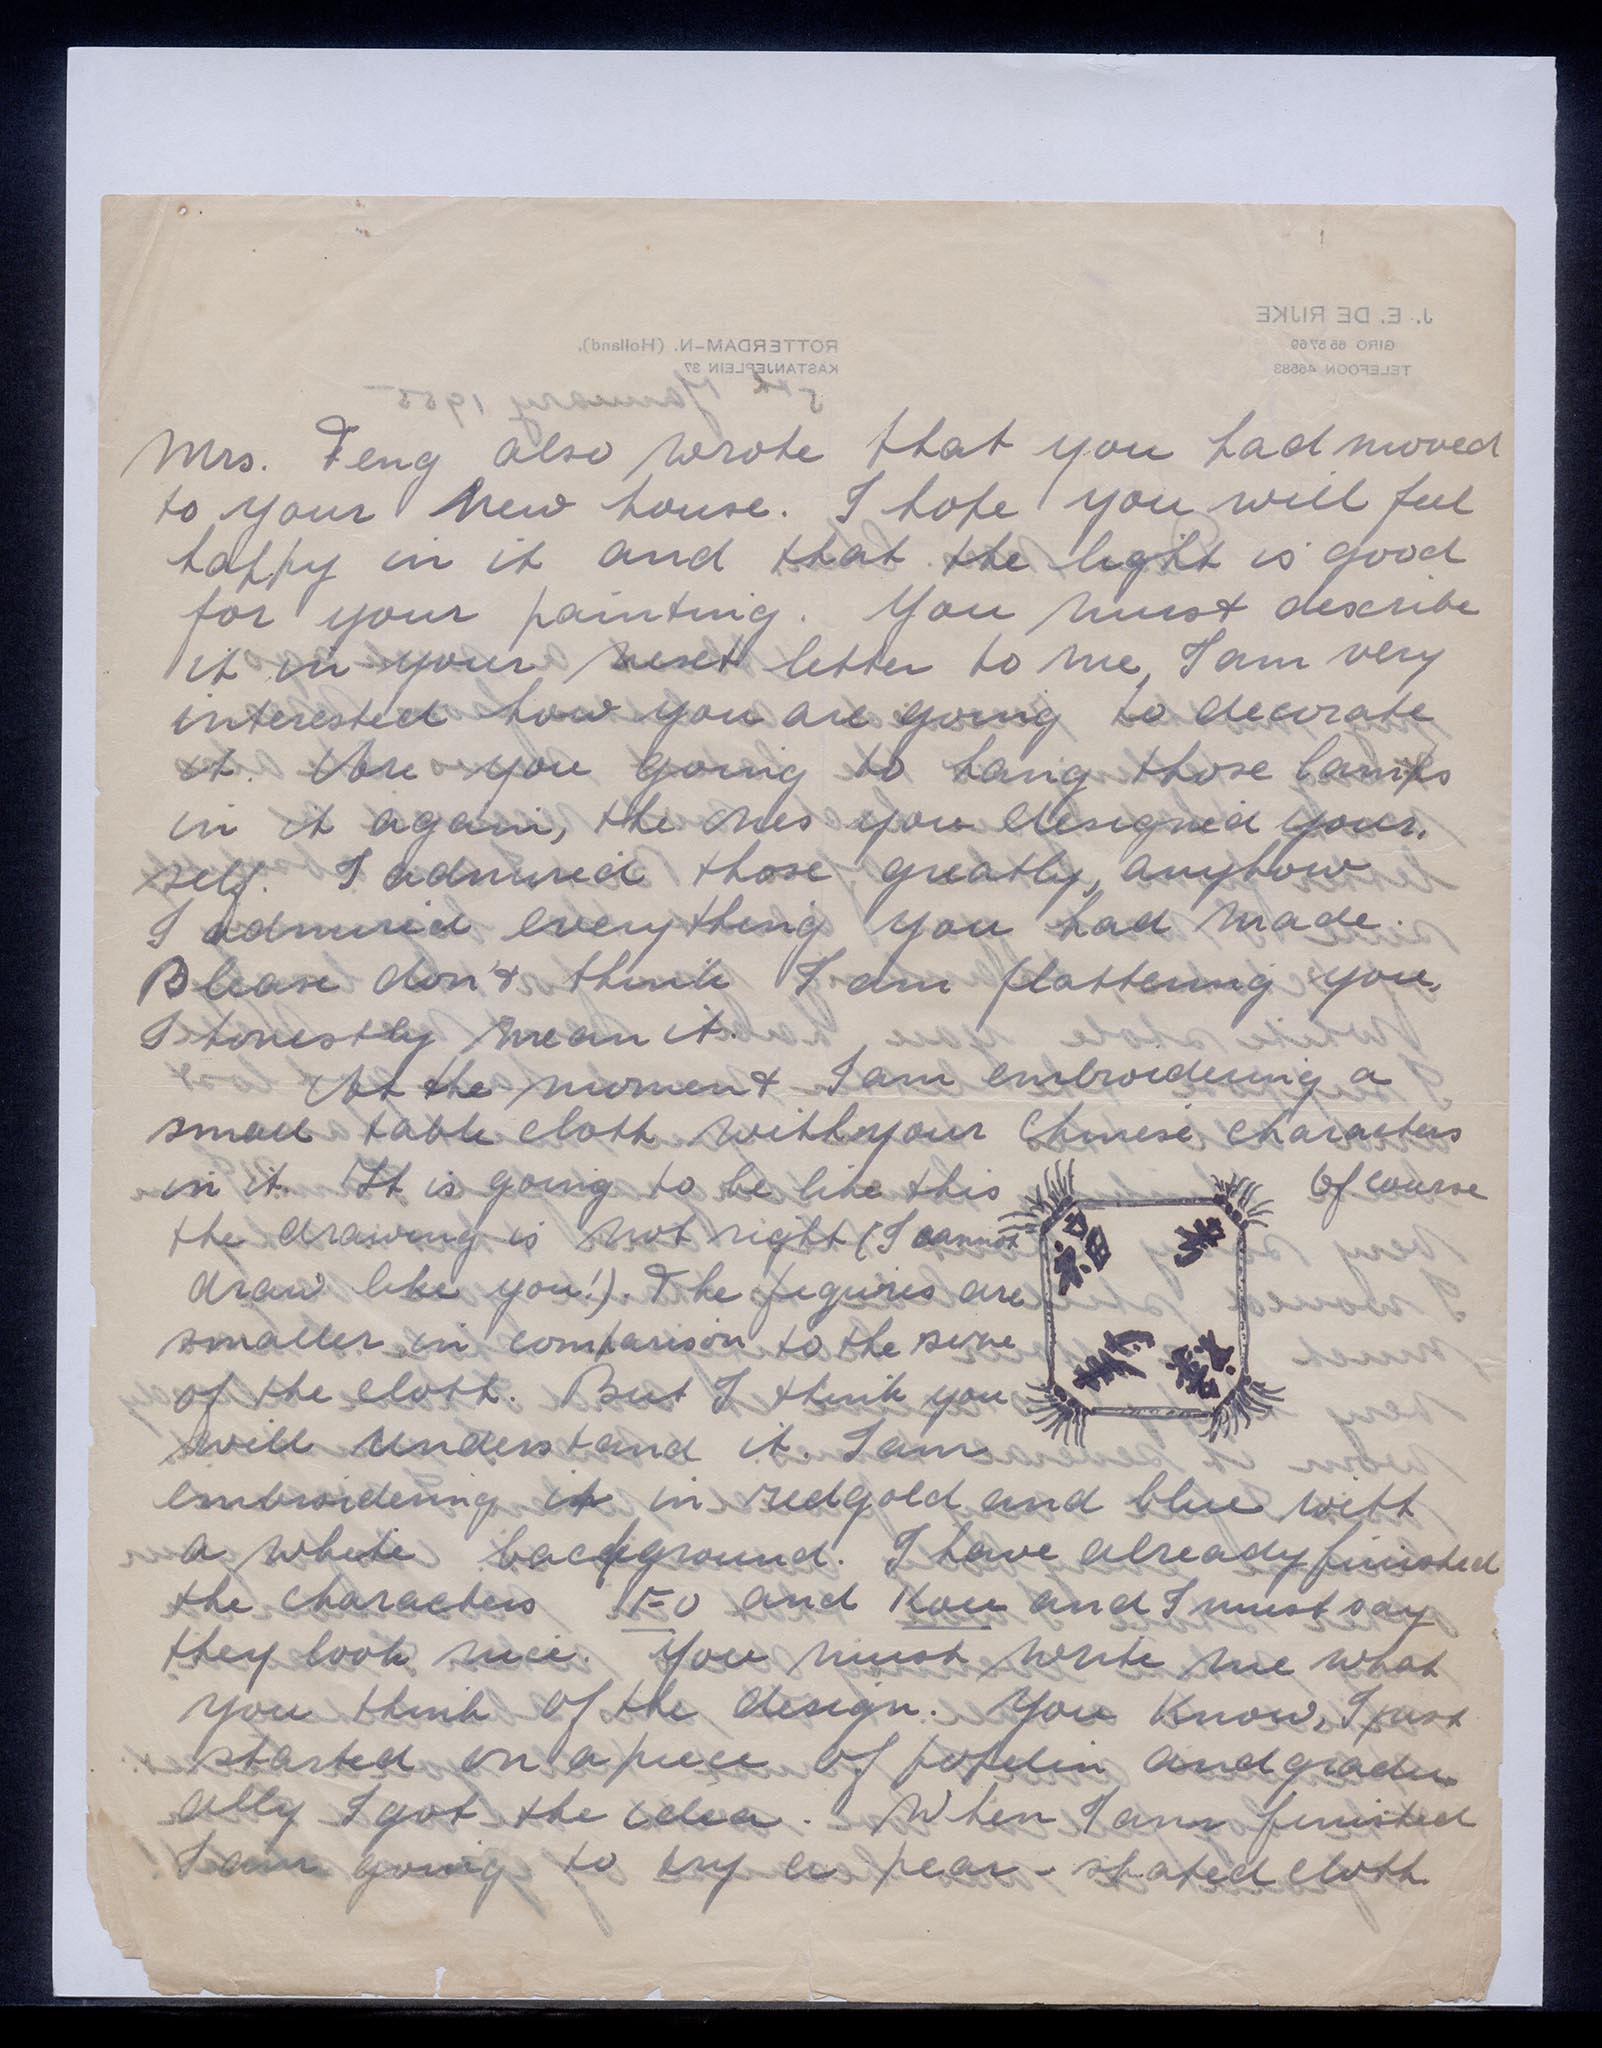 J. E. DE RIJKE
GIRO 55 57 69
TELEFOON 46583
ROTTERDAM-N. (Holland).
KASTANJEPLEIN 37
5th January 1955
Mrs. Feng also wrote that you had moved
to your new house. I hope you will feel
happy in it and that the light is good
for your painting. You must describe
it in your next letter to me, I am very
interested how you are going to decorate
it. Are you going to hang those lamps
in it again, the ones you designed your-
self. I admired those greatly, anyhow
I admired everything you had made.
Please don't think I am flattering you,
I honestly mean it.
At the moment I am embroidering a
small table cloth with your Chinese characters
in it. It is going to be like this Of course
the drawing is not right (I cannot
draw like you!). The figures are
smaller in comparison to the size
of the cloth. But I think you
will understand it. I am
embroidering it in red gold and blue with
a white background. I have already finished
the characters Fo and Kou and I must say
they look nice. You must write me what
you think of the design. You know, I just
started on a piece of popelin and gradu-
ally I got the idea. When I am finished
I am going to try a pear-shaped cloth